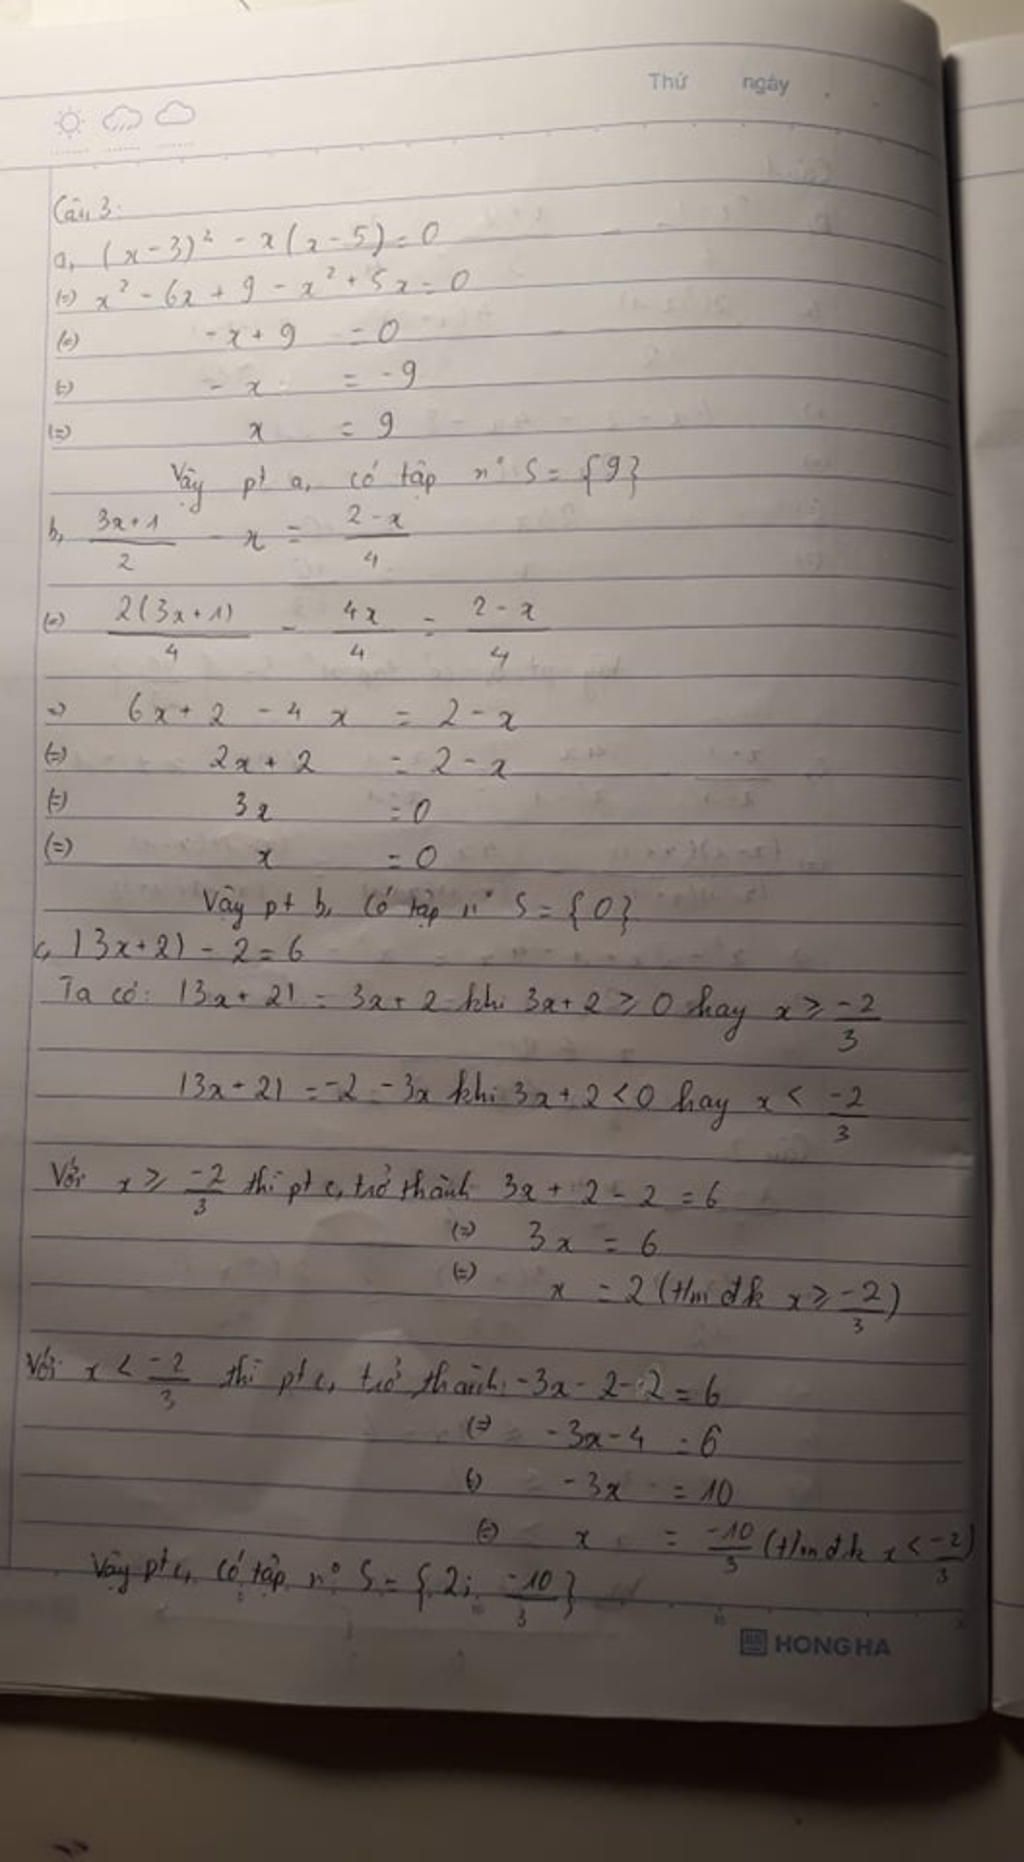 Thứ ngày
Câu 3:
a, (x-3)² - x(x-5) = 0
(=) x² - 6x + 9 - x² + 5x = 0
(=) -x + 9 = 0
(=) -x = -9
(=) x = 9
Vậy pt a, có tập n° S = {9}
b, \frac{3x+1}{2} - x = \frac{2-x}{4}
(=) \frac{2(3x+1)}{4} - \frac{4x}{4} = \frac{2-x}{4}
=) 6x + 2 - 4x = 2 - x
(=) 2x + 2 = 2 - x
(=) 3x = 0
(=) x = 0
Vậy pt b, có tập n° S = {0}
c, |3x+2| - 2 = 6
Ta có: |3x+2| = 3x+2 khi 3x+2 ≥ 0 hay x ≥ \frac{-2}{3}
|3x+2| = -2 - 3x khi 3x+2 < 0 hay x < \frac{-2}{3}
Với x ≥ \frac{-2}{3} thì pt c, trở thành 3x + 2 - 2 = 6
(=) 3x = 6
(=) x = 2 (t/m đk x ≥ \frac{-2}{3})
Với x < \frac{-2}{3} thì pt c, trở thành: -3x - 2 - 2 = 6
(=) -3x - 4 = 6
(=) -3x = 10
(=) x = \frac{-10}{3} (t/m đk x < \frac{-2}{3})
Vậy pt c, có tập n° S = {2; \frac{-10}{3}}
HONG HA